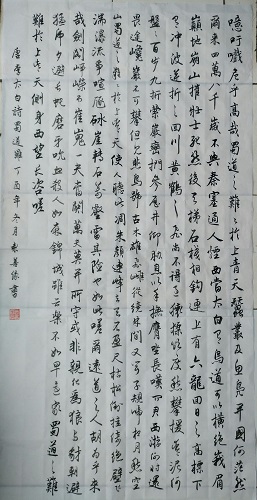 噫吁戲危乎高哉蜀道之難難於上青天蠶叢及魚鳧開國何茫然
爾來四萬八千歲不與秦塞通人煙西當太白有鳥道可以橫絕峨眉
巔地崩山摧壯士死然後天梯石棧相鉤連上有六龍回日之高標下
有衝波逆折之回川黃鶴之飛尚不得過猿猱欲度愁攀援青泥何
盤盤百步九折縈巖巒捫參歷井仰脅息以手撫膺坐長嘆問君西遊何時還
畏途巉巖不可攀但見悲鳥號古木雄飛雌從繞林間又聞子規啼夜月愁空
山蜀道之難難於上青天使人聽此凋朱顏連峰去天不盈尺枯松倒掛倚絕壁飛
湍瀑流爭喧豗砯崖轉石萬壑雷其險也如此嗟爾遠道之人胡為乎來
哉劍閣崢嶸而崔嵬一夫當關萬夫莫開所守或匪親化為狼與豺朝避
猛虎夕避長蛇磨牙吮血殺人如麻錦城雖云樂不如早還家蜀道之難
難於上青天側身西望長咨嗟
唐李太白詩蜀道難丁酉年冬月書